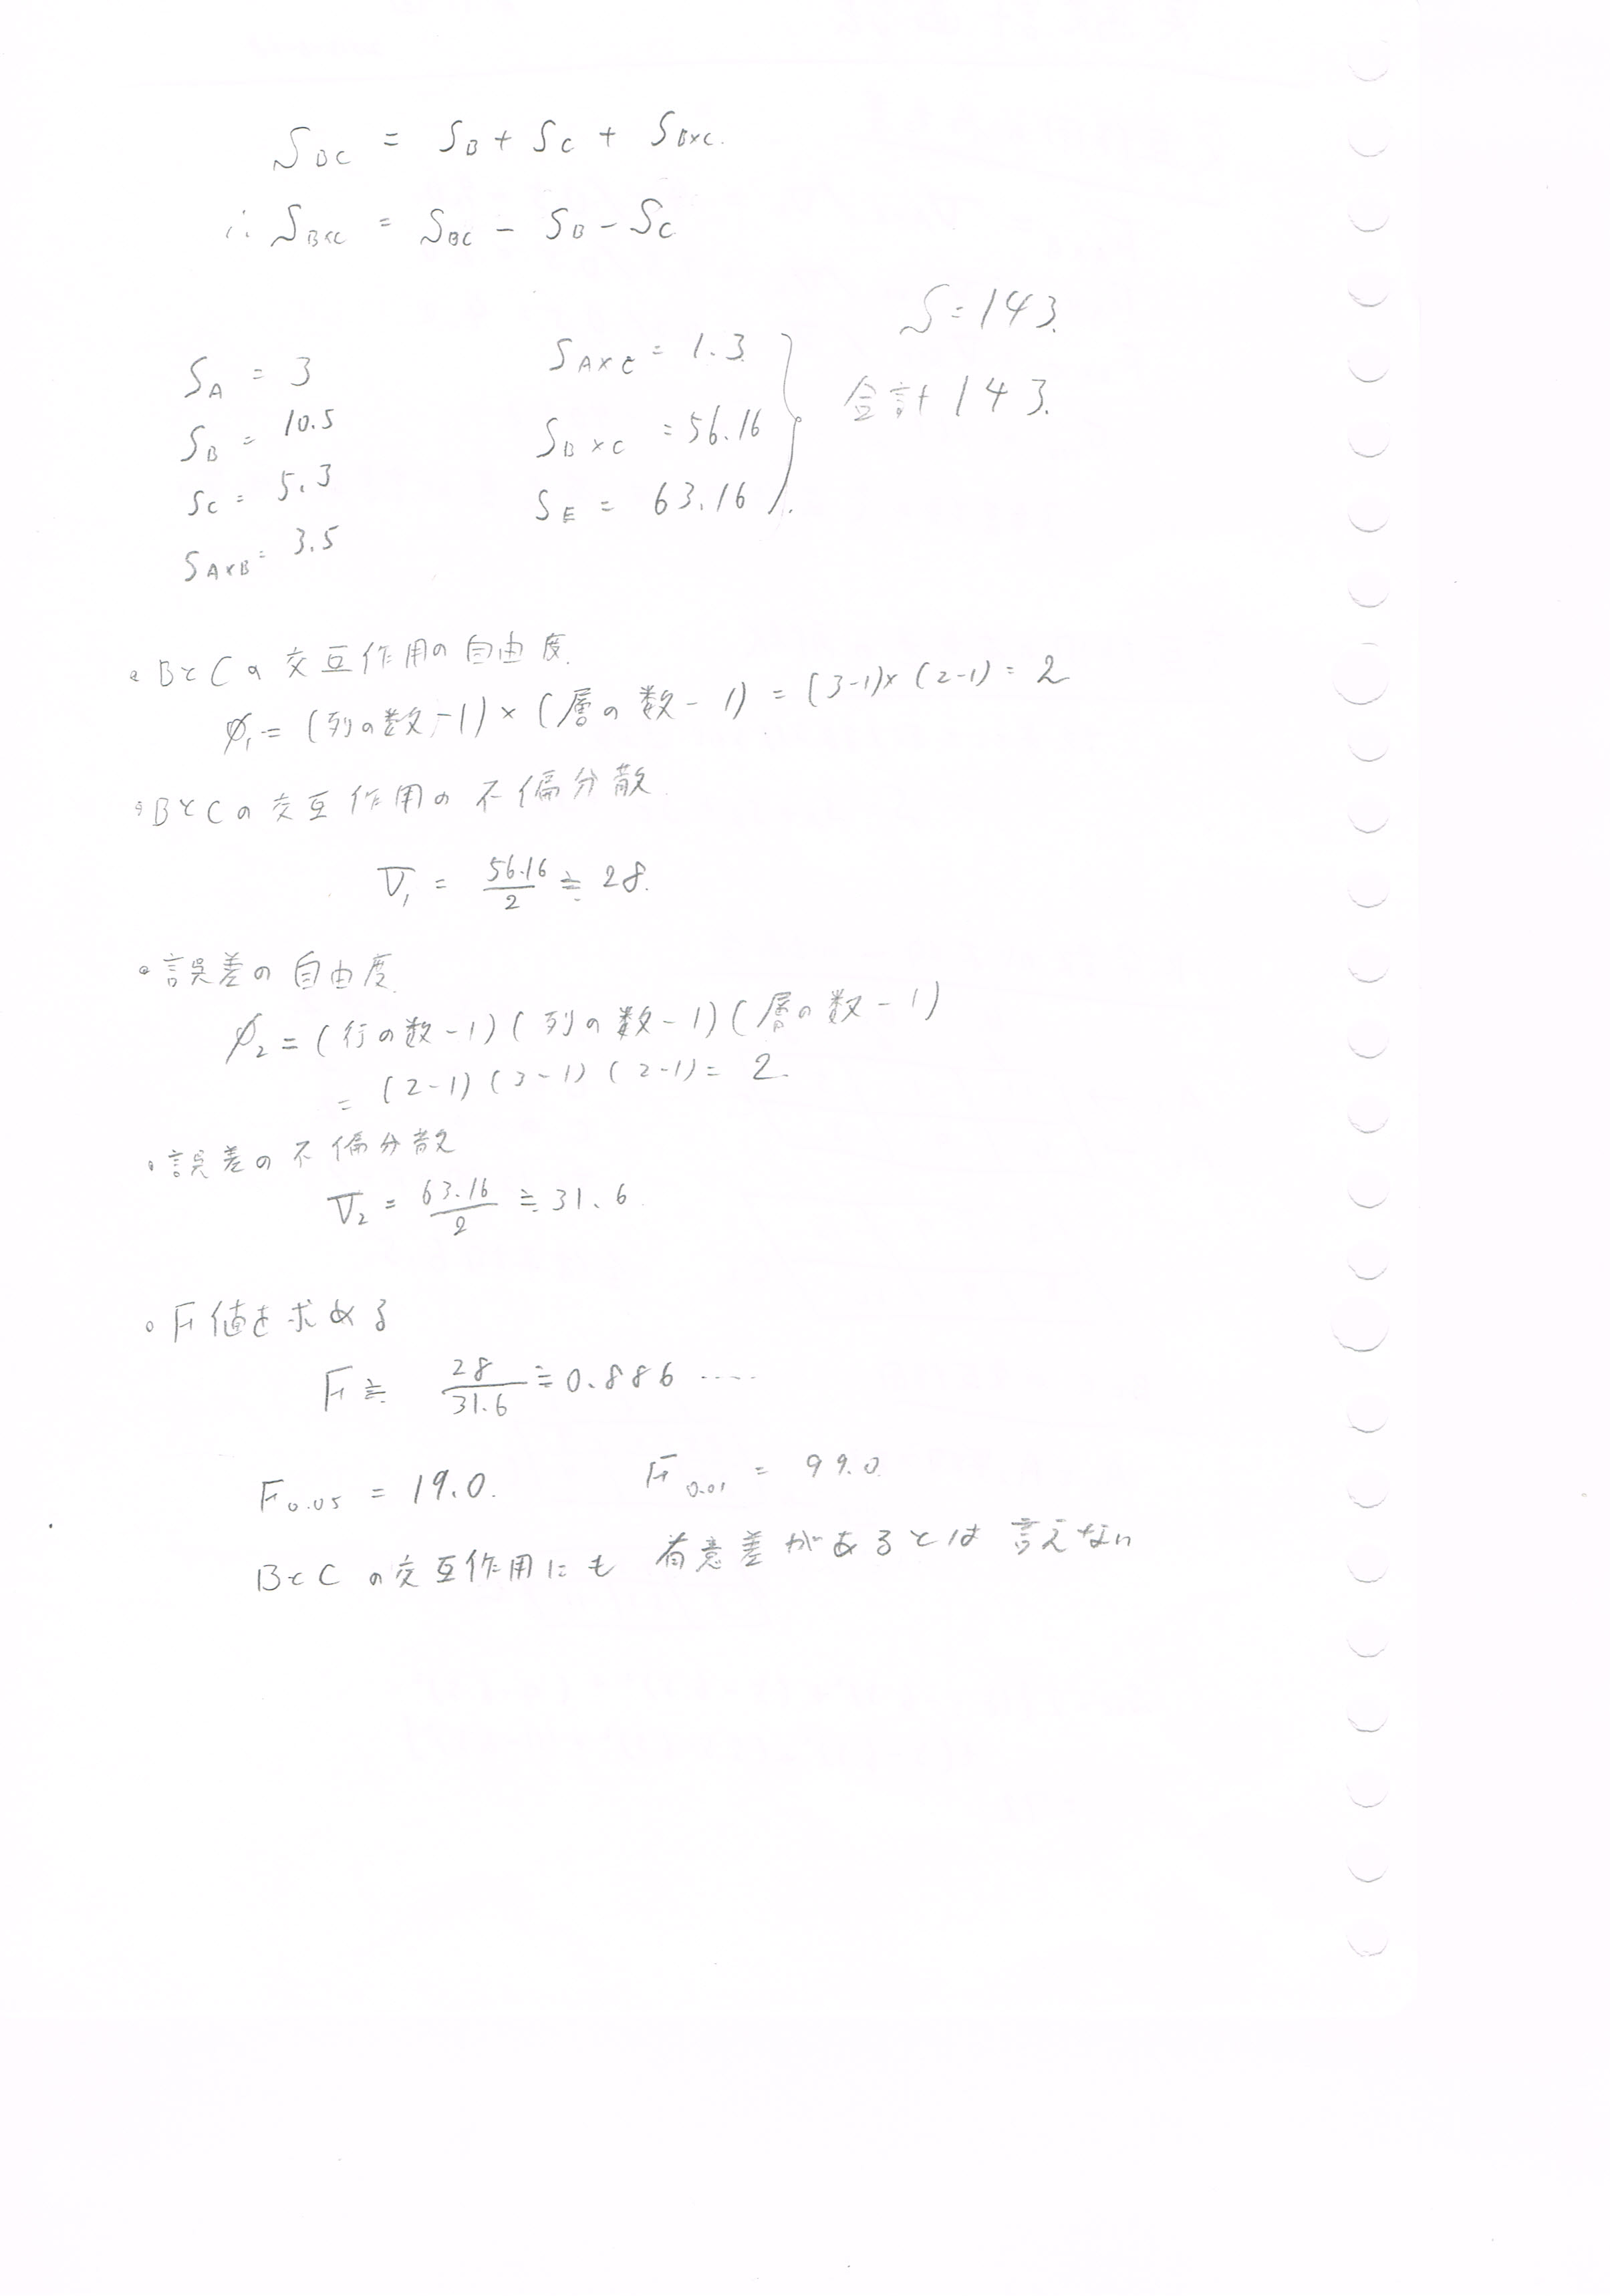 S_BC = S_B + S_C + S_B×C.
∴ S_B×C = S_BC − S_B − S_C
S = 143.
S_A = 3
S_B = 10.5
S_C = 5.3
S_A×B = 3.5
S_A×C = 1.3
S_B×C = 56.16
S_E = 63.16
合計 143.
・BとCの交互作用の自由度.
φ₁ = (列の数−1)×(層の数−1) = (3−1)×(2−1) = 2
・BとCの交互作用の不偏分散
V₁ = 56.16/2 ≒ 28.
・誤差の自由度.
φ₂ = (行の数−1)(列の数−1)(層の数−1)
= (2−1)(3−1)(2−1) = 2.
・誤差の不偏分散
V₂ = 63.16/2 ≒ 31.6.
・F値を求める
F ≒ 28/31.6 ≒ 0.886 ‥‥
F_0.05 = 19.0. F_0.01 = 99.0.
BとCの交互作用にも 有意差があるとは言えない